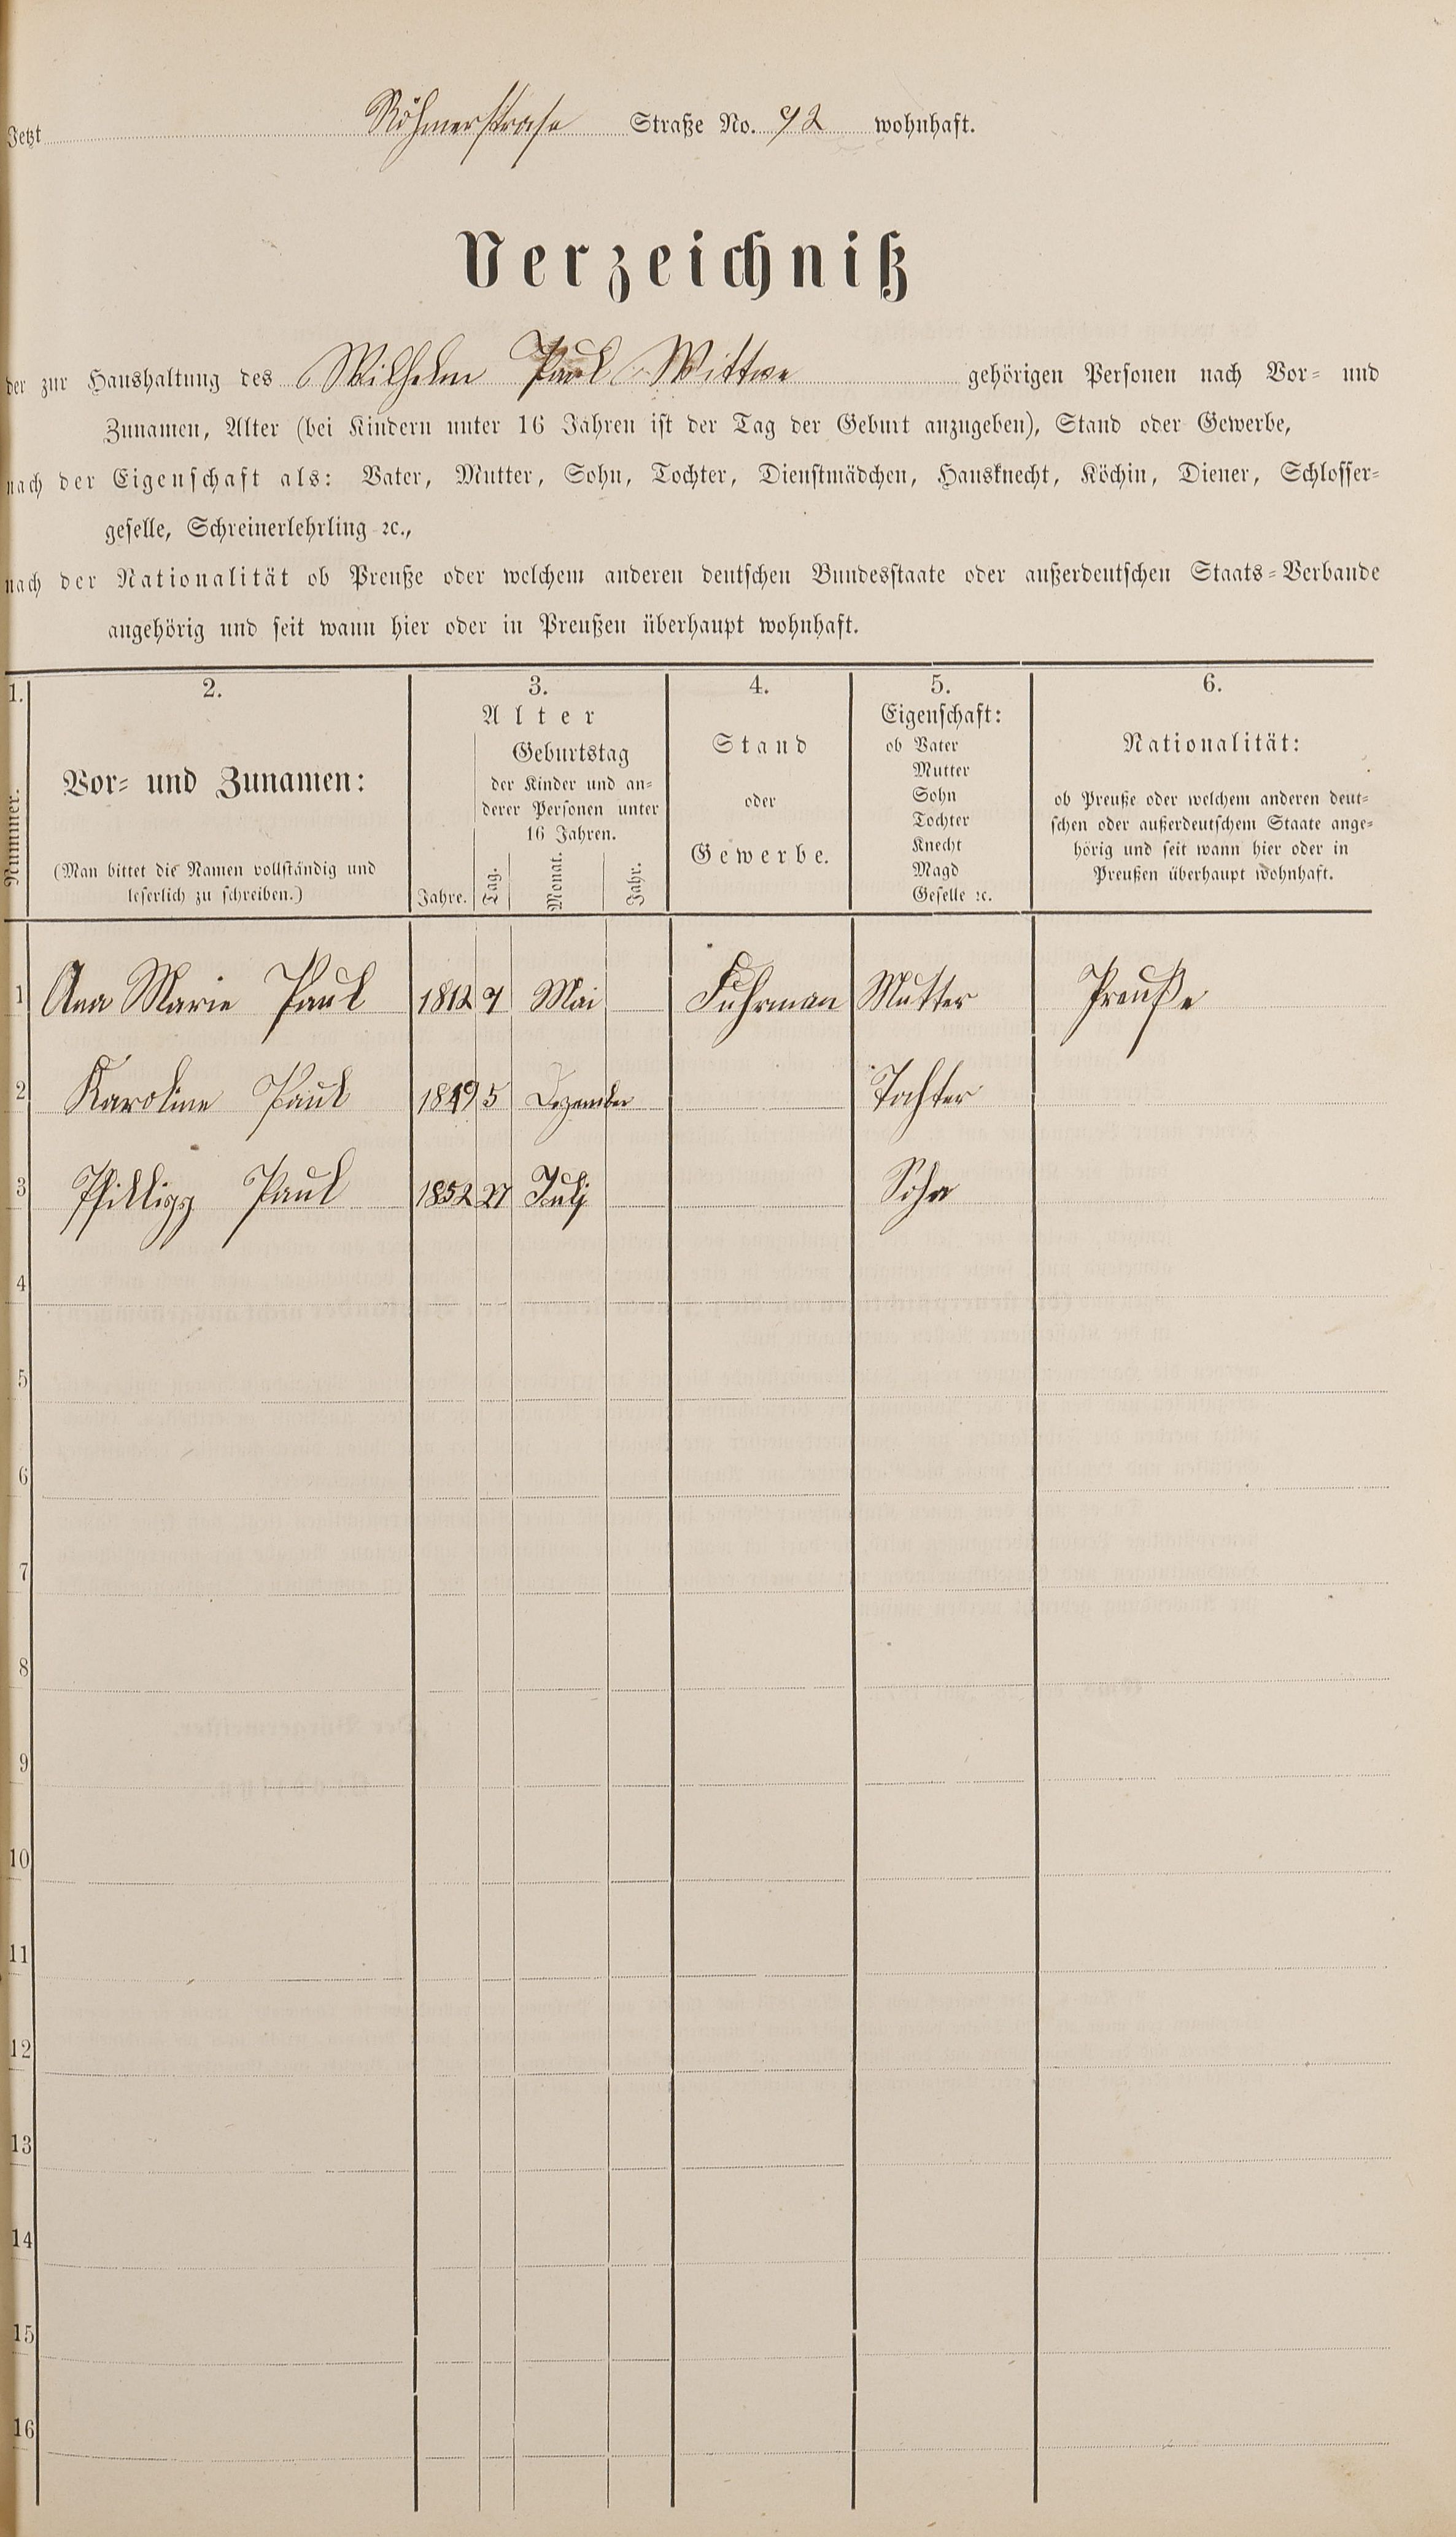 Jetzt Röhmerstrase Straße No. 92 wohnhaft.
Verzeichniß
der zur Haushaltung des Wilhelm Paul Wittwe gehörigen Personen nach Vor- und
Zunamen, Alter (bei Kindern unter 16 Jahren ist der Tag der Geburt anzugeben), Stand oder Gewerbe,
nach der Eigenschaft als: Vater, Mutter, Sohn, Tochter, Dienstmädchen, Hausknecht, Köchin, Diener, Schlosser-
geselle, Schreinerlehrling ꝛc.,
nach der Nationalität ob Preuße oder welchem anderen deutschen Bundesstaate oder außerdeutschen Staats-Verbande
angehörig und seit wann hier oder in Preußen überhaupt wohnhaft.
1. 2. 3. 4. 5. 6.
Nummer.
Vor- und Zunamen:
(Man bittet die Namen vollständig und
leserlich zu schreiben.)
Alter
Geburtstag
der Kinder und an-
derer Personen unter
16 Jahren.
Jahre. Tag. Monat. Jahr.
Stand
oder
Gewerbe.
Eigenschaft:
ob Vater
Mutter
Sohn
Tochter
Knecht
Magd
Geselle ꝛc.
Nationalität:
ob Preuße oder welchem anderen deut-
schen oder außerdeutschem Staate ange-
hörig und seit wann hier oder in
Preußen überhaupt wohnhaft.
1 Ana Marie Paul 1812 9 Mai Fuhrman Mutter Preuße
2 Karoline Paul 1849 5 Dezember Tochter
3 Phillipp Paul 1852 27 Juli Sohn
4
5
6
7
8
9
10
11
12
13
14
15
16